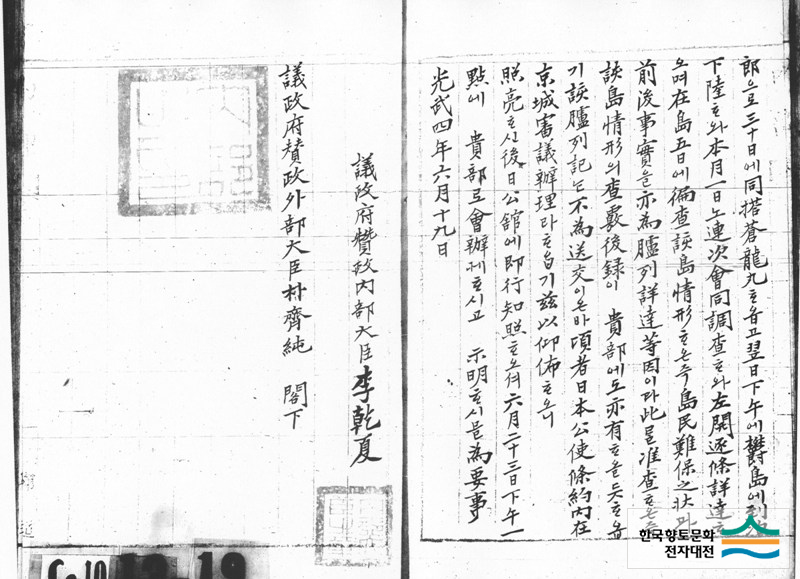 郎으로 三十日에 同搭蒼龍丸ᄒᆞᆸ고 翌日下午에 鬱島에 到泊
下陸ᄒᆞ와 本月一日노 連次會同調査ᄒᆞ와 左開逐條詳達ᄒᆞ
오며 在島五日에 徧査該島情形ᄒᆞ온즉 島民難保之狀과
前後事實을 亦為臚列詳達等因이다 此를 准査ᄒᆞ온즉
該島情形의 査覈後録이 貴部에도 亦有ᄒᆞ올 듯ᄒᆞᄋᆞᆸ
기 該臚列記ᄂᆞᆫ 不為送交이온바 頃者日本公使條約內在
京城審議辦理라 ᄒᆞᄋᆞᆸ기 玆以仰佈ᄒᆞ오니
照亮ᄒᆞ신 後 日公館에 即行知照ᄒᆞ오셔 六月二十三日下午一
點에 貴部로 會辦케 ᄒᆞ시고 示明ᄒᆞ시믈 為要事
光武四年六月十九日
議政府贊政內部大臣李乾夏
議政府賛政外部大臣朴齊純 閣下
한국향토문화
전자대전